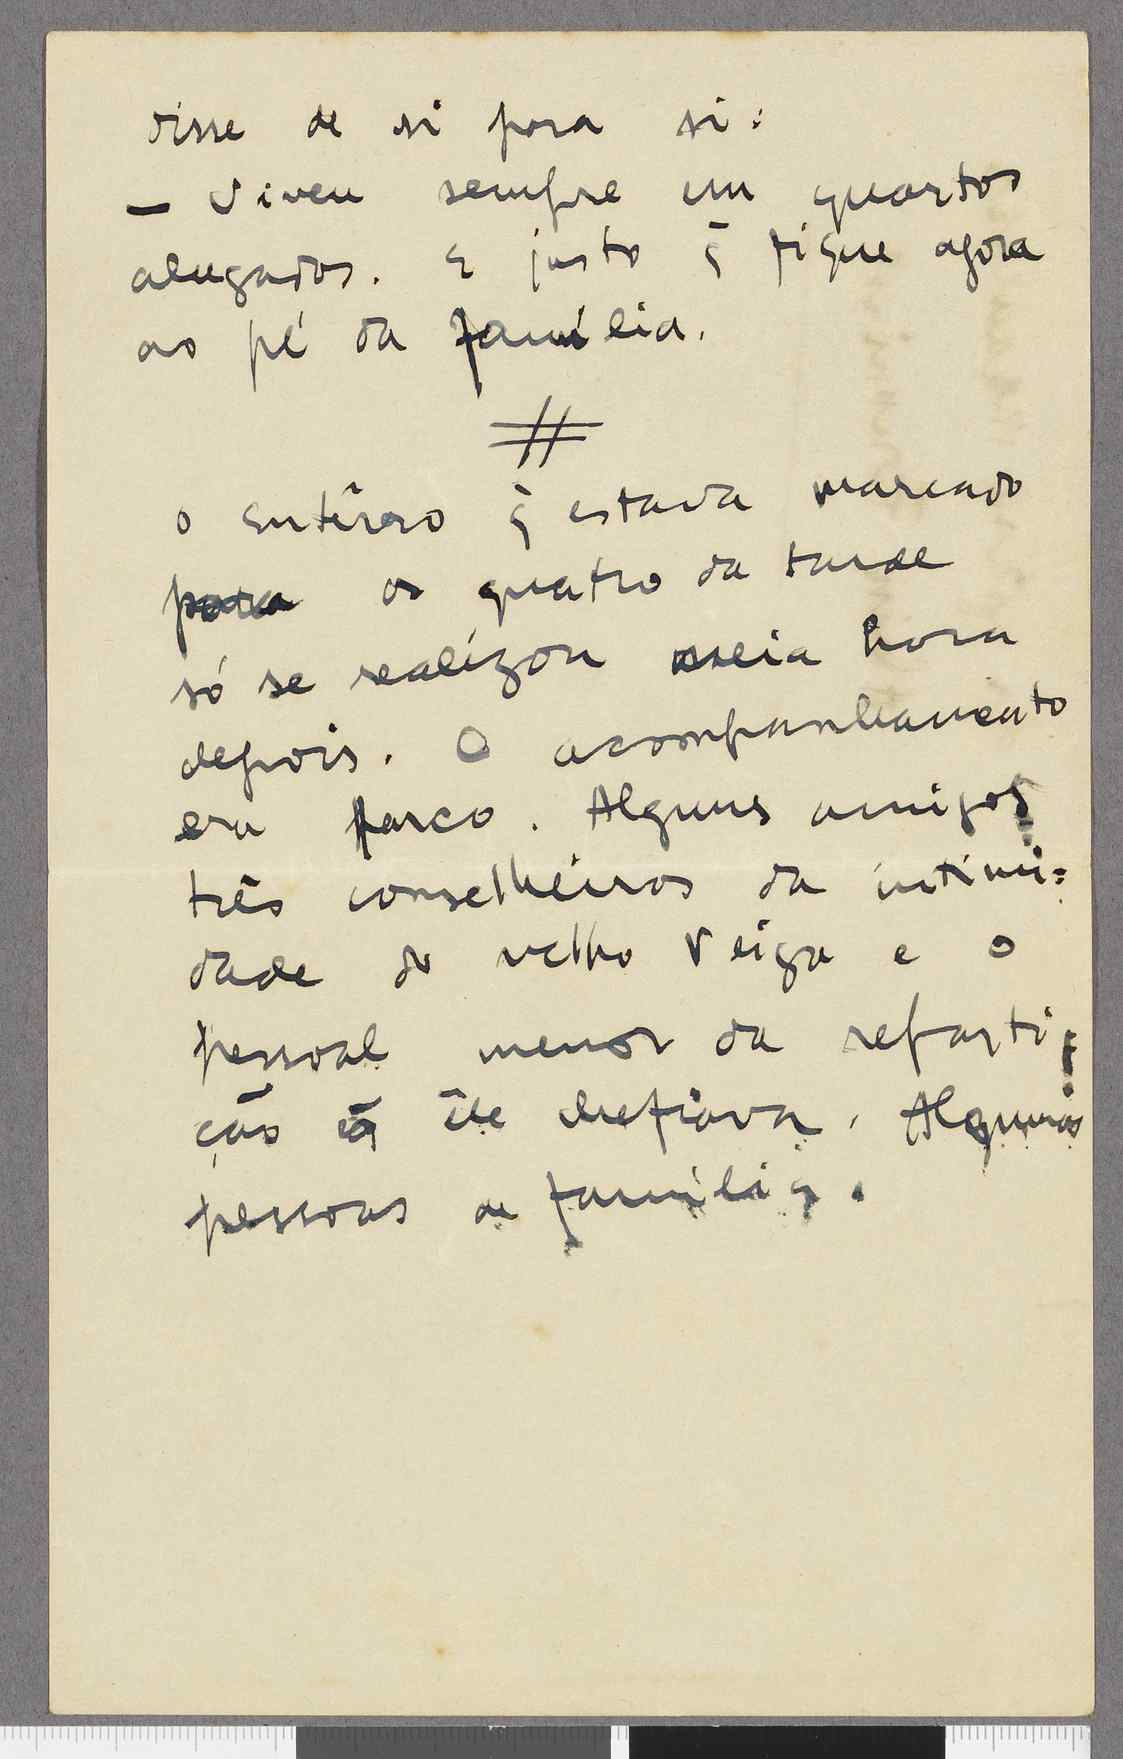 disse de si para si:
— Viveu sempre em quartos
alugados. E justo q̃ fique agora
ao pé da família.
#
O entêrro q̃ estava marcado
para as quatro da tarde
só se realizou meia hora
depois. O acompanhamento
era parco. Alguns amigos,
três conselheiros da intimi=
dade do velho Veiga e o
pessoal menor da reparti-
ção q̃ êle chefiava. Algumas
pessoas de família.